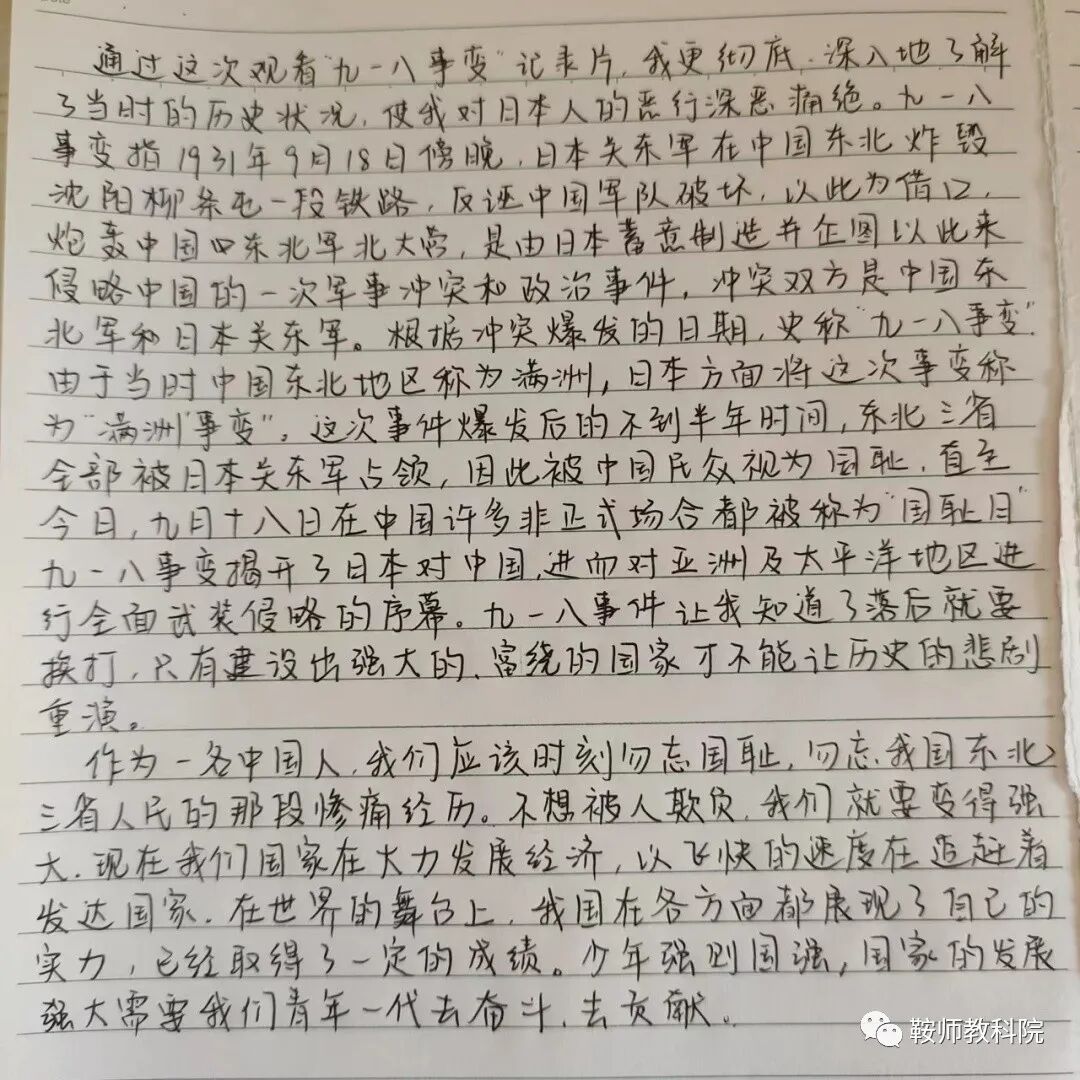 通过这次观看“九一八事变”记录片，我更彻底、深入地了解
了当时的历史状况，使我对日本人的恶行深恶痛绝。九一八
事变指1931年9月18日傍晚，日本关东军在中国东北炸毁
沈阳柳条屯一段铁路，反诬中国军队破坏，以此为借口，
炮轰中国四东北军北大营，是由日本蓄意制造并企图以此来
侵略中国的一次军事冲突和政治事件，冲突双方是中国东
北军和日本关东军。根据冲突爆发的日期，史称“九一八事变”.
由于当时中国东北地区称为满洲，日本方面将这次事变称
为“满洲事变”。这次事件爆发后的不到半年时间，东北三省
全部被日本关东军占领，因此被中国民众视为国耻，直至
今日，九月十八日在中国许多非正式场合都被称为“国耻日”
九一八事变揭开了日本对中国、进而对亚洲及太平洋地区进
行全面武装侵略的序幕。九一八事件让我知道了落后就要
挨打，只有建设出强大的、富绕的国家才不能让历史的悲剧
重演。
作为一名中国人，我们应该时刻勿忘国耻，勿忘我国东北
三省人民的那段惨痛经历。不想被人欺负，我们就要变得强
大.现在我们国家在大力发展经济，以飞快的速度在追赶着
发达国家.在世界的舞台上，我国在各方面都展现了自己的
实力，已经取得了一定的成绩。少年强则国强，国家的发展
强大需要我们青年一代去奋斗、去贡献。
鞍师教科院